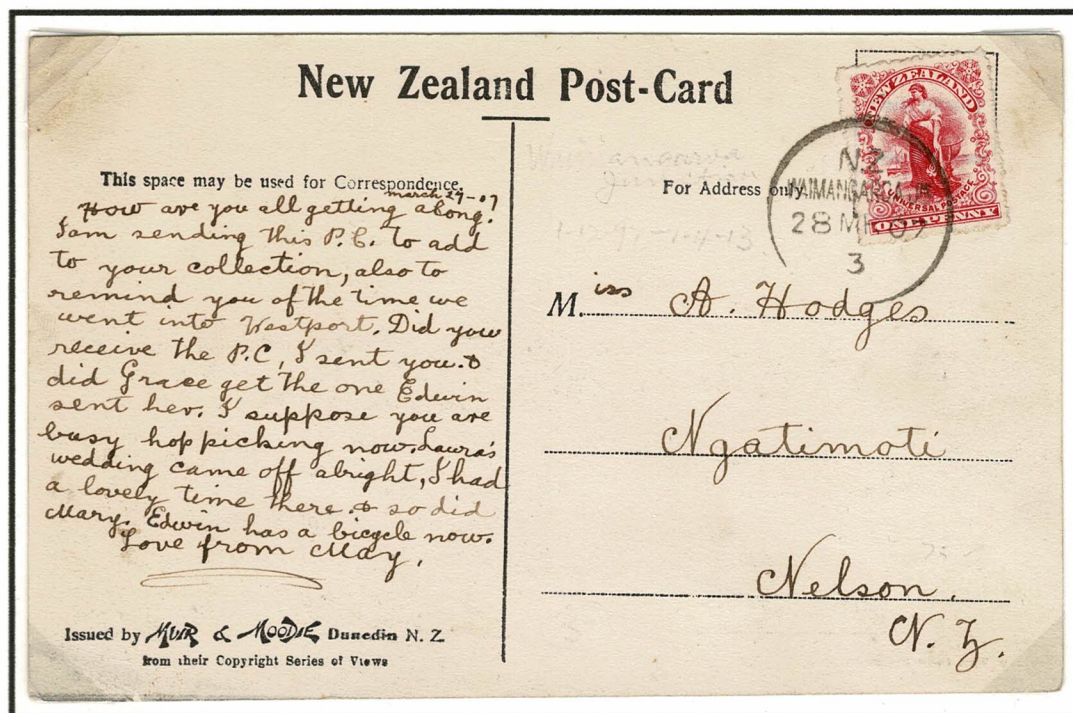 New Zealand Post-Card
This space may be used for Correspondence.
March 27-07
How are you all getting along.
I am sending this P.C. to add
to your collection, also to
remind you of the time we
went into Westport. Did you
receive the P.C, I sent you. &
did Grace get the one Edwin
sent her. I suppose you are
busy hop picking now. Laura's
wedding came off alright, I had
a lovely time there & so did
Mary. Edwin has a bicycle now.
Love from May.
Issued by MUIR & MOODIE Dunedin N. Z.
from their Copyright Series of Views
For Address only
NEW ZEALAND
UNIVERSAL POSTAGE
ONE PENNY
N.Z
WAIMANGAROA JN
28 MR 07
3
Waimangaroa
Junction
Miss A. Hodges
Ngatimoti
Nelson.
N. Z.